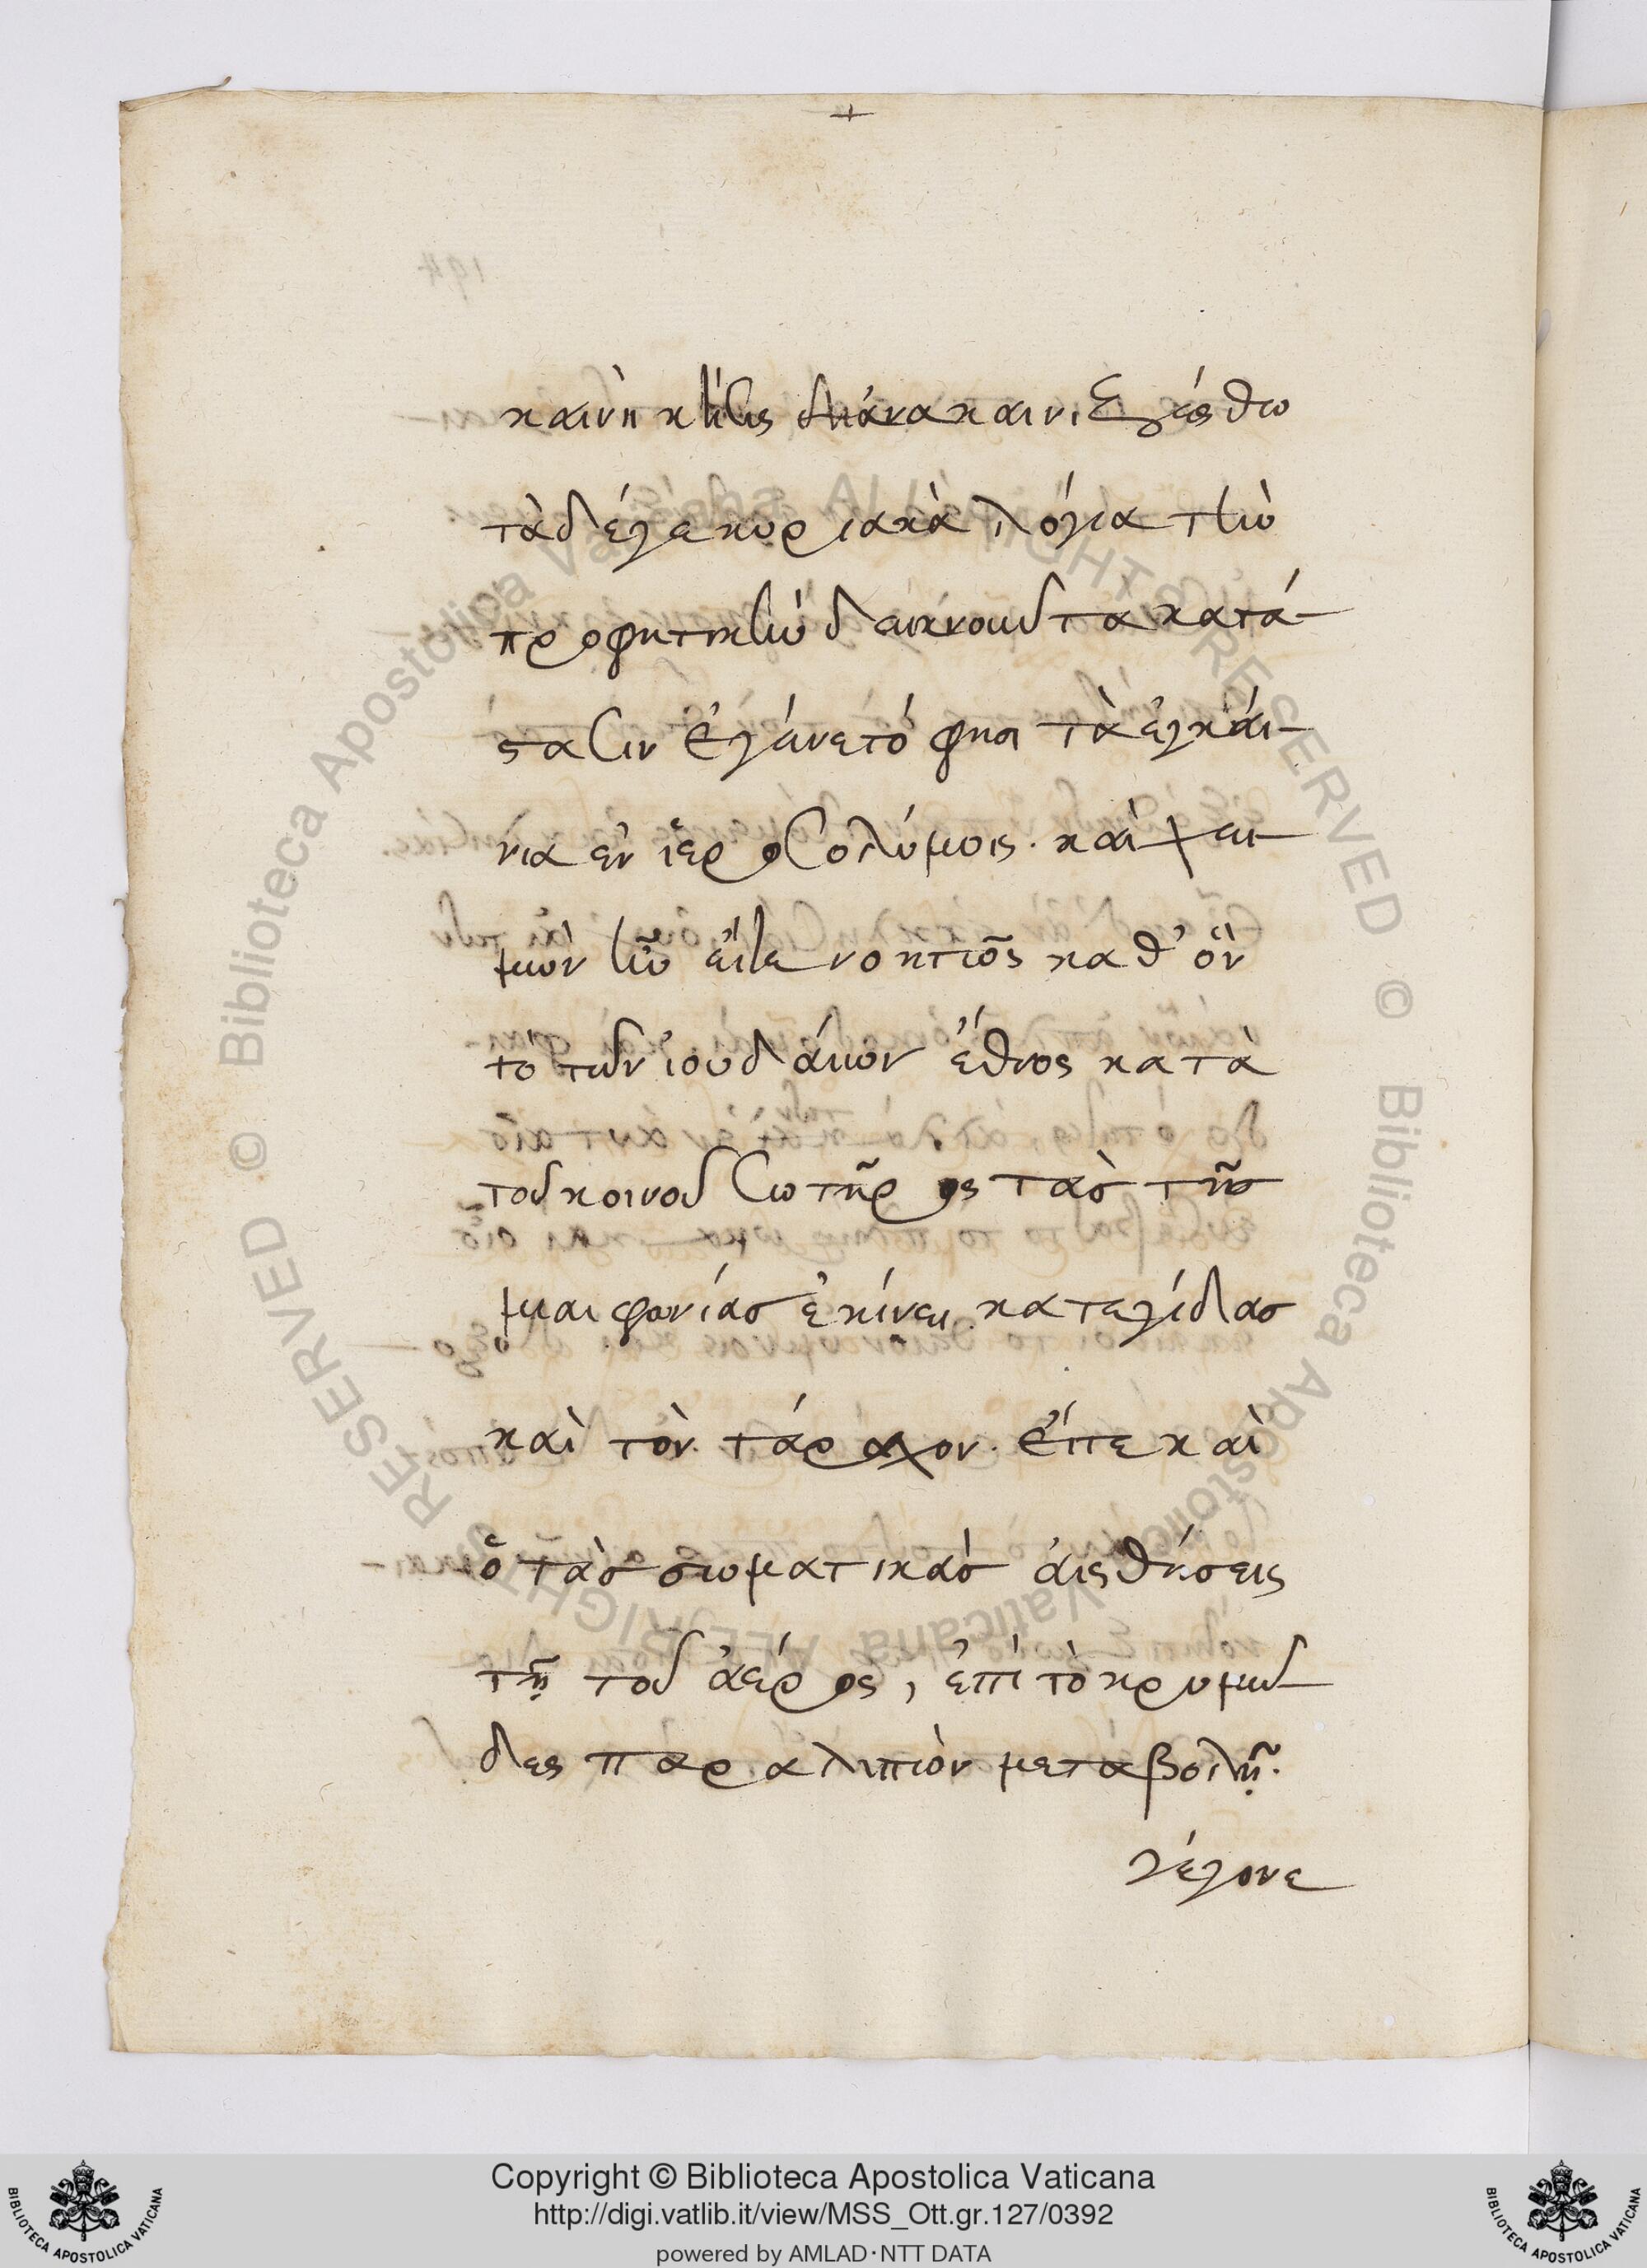 καινὴ κτίσις ἀνακαινιζέσθω
τὰ δέ γε κυριακὰ λόγια τὴν
προφητικὴν δεικνοῦντα κατά-
στασιν ἐγένετό φησι τὰ ἐγκαί-
νια ἐν ἱεροσολύμοις. καὶ χει-
μὼν ἦν εἴτε νοητῶς καθ' ὃν
τὸ τῶν ἰουδαίων ἔθνος κατὰ
τοῦ κοινοῦ σωτῆρος τὰς τῆς
μιαιφονίας ἐκίνει καταιγίδας
καὶ τὸν τάραχον. εἴτε καὶ
ὁ τὰς σωματικὰς αἰσθήσεις
τῇ τοῦ ἀέρος, ἐπὶ τὸ κρυμῶ-
δες παραλυπῶν μεταβολῇ.
γέγονε
194
Copyright © Biblioteca Apostolica Vaticana
http://digi.vatlib.it/view/MSS_Ott.gr.127/0392
powered by AMLAD·NTT DATA
BIBLIOTECA APOSTOLICA VATICANA
BIBLIOTECA APOSTOLICA VATICANA
© Biblioteca Apostolica Vaticana ALL RIGHTS RESERVED
© Biblioteca Apostolica Vaticana ALL RIGHTS RESERVED